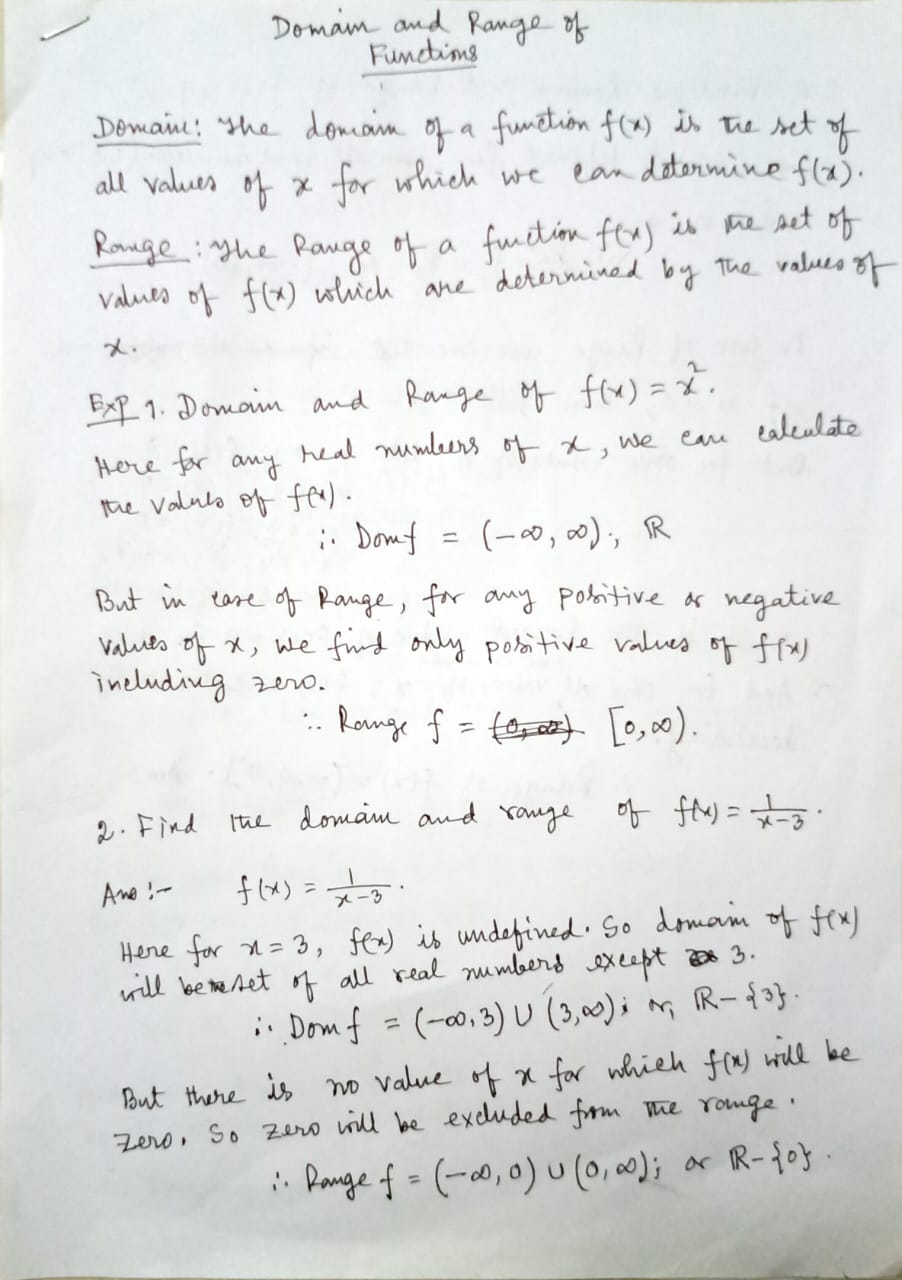 Domain and Range of
Functions
Domain: The domain of a function f(x) is the set of
all values of x for which we can determine f(x).
Range: The Range of a function f(x) is the set of
values of f(x) which are determined by the values of
x.
Exp 1. Domain and Range of f(x) = x².
Here for any real numbers of x, we can calculate
the values of f(x).
∴ Dom f = (-∞, ∞); ℝ
But in case of Range, for any positive or negative
values of x, we find only positive values of f(x)
including zero.
∴ Range f = [0, ∞).
2. Find the domain and range of f(x) = 1/(x-3).
Ans:- f(x) = 1/(x-3).
Here for x = 3, f(x) is undefined. So domain of f(x)
will be the set of all real numbers except 3.
∴ Dom f = (-∞, 3) ∪ (3, ∞); or, ℝ-{3}.
But there is no value of x for which f(x) will be
zero. So zero will be excluded from the range.
∴ Range f = (-∞, 0) ∪ (0, ∞); or ℝ-{0}.